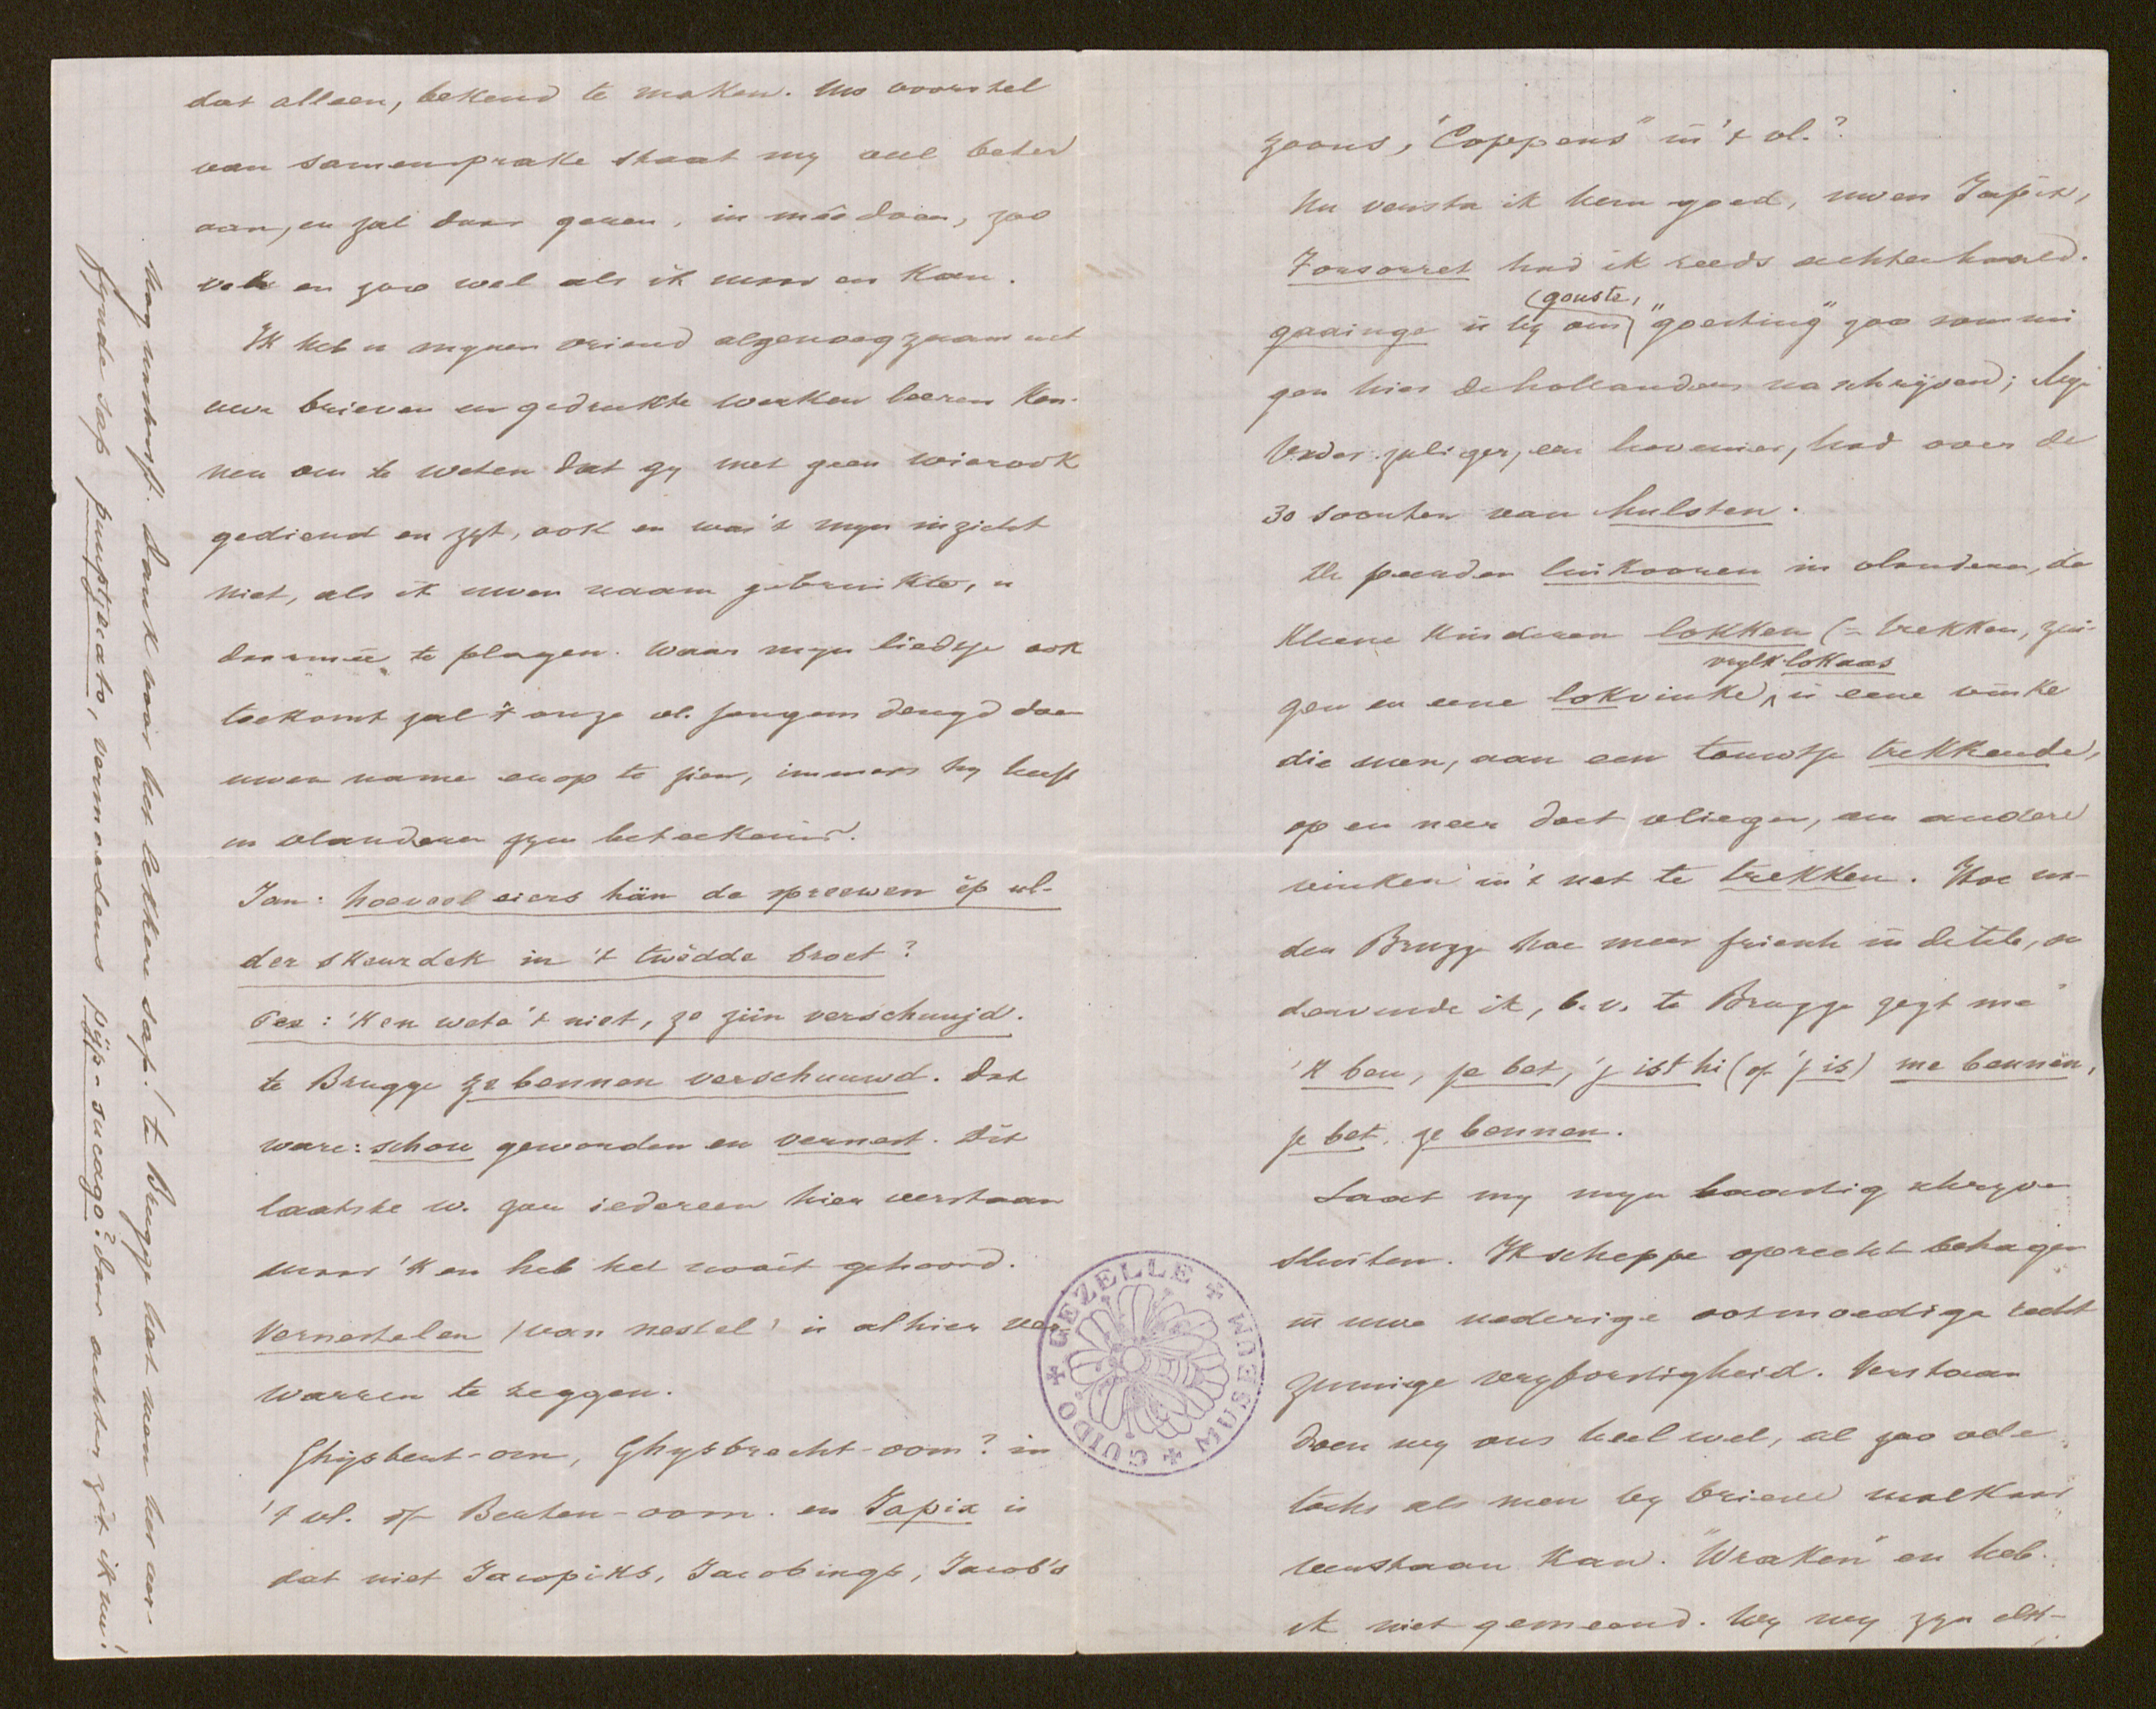 dat alleen, bekend te maken. Uw voorstel
van samensprake staat my veel beter
aan, en zal daar geren, in meêdoen, zoo
vele en zoo wel als ik maar en kan.
Ik heb u mynen vriend algenoegzaam uit
uwe brieven en gedrukte werken leeren ken-
nen om te weten dat gy met geen wierook
gediend en zyt, ook en was 't myn inzicht
niet, als ik uwen naam gebruikte, u
daarmeê te plagen. Waar myn liedtje ook
toekomt zal 't onze vl. jongens deugd doen
uwen name erop te zien, immers hy heeft
in vlanderen zyn beteekenis.
Jan: hoeveel eiers hän de spreewen ip ul-
der skeurdek in 't twedde broet?
Pee: 'K en wete 't niet, ze ziin verschuujd.
te Brugge ze bennen verschuuwd. Dat
ware: schou geworden en vernest. Dit
laatste w. zou iedereen hier verstaan
maar 'k en heb het nooit gehoord.
Vernestelen (van nestel) is alhier ver
warren te zeggen.
Ghysbert-om, Ghysbrecht-oom? in
't vl. of Berten-oom. en Japix is
dat niet Jacopiks, Jacobings, Jacob's
zoons, "Coppens" in 't vl.?
Nu versta ik hem goed, uwen Japix,
Forsorret had ik reeds achterhaald.
(gonste,
gaainge is by ons) "goesting" zoo sommi
gen hier de hollanders naschryvend; Myn
Vader zaliger, een hovenier, had over de
30 soorten van hulsten.
De peerden luikooren in vlanderen, de
kleene kinderen lokken (= trekken, zui-
vrglk lokaas
gen en eene lokvinke, is eene vinke
die men, aan een touwtje trekkende,
op en neer doet vliegen, om andere
vinken in 't net te trekken. Hoe na-
der Brugge hoe meer friesch in de tale, on
dervinde ik, b.v. te Brugge zegt me
'k ben, je bet, 'j ist hi (of 'j is) me bennen,
je bet, ze bennen.
Laat my myn haastig schryven
sluiten. Ik scheppe oprecht behagen
in uwe nederige ootmoedige recht
zinnige vryborstigheid. Verstaan
doen wy ons heel wel, al zoo vele
tochs als men by brieve malkaar
verstaan kan. "Wraken" en heb
ik niet gemeend. Wy wy zyn elk-
Nog naschrift. Dank voor het lekkere sap! te Brugge hoet men her aer-
fynde sap puupzeato, vermoedens püp-sucago? daar achter zit ik nu!
GUIDO GEZELLE MUSEUM